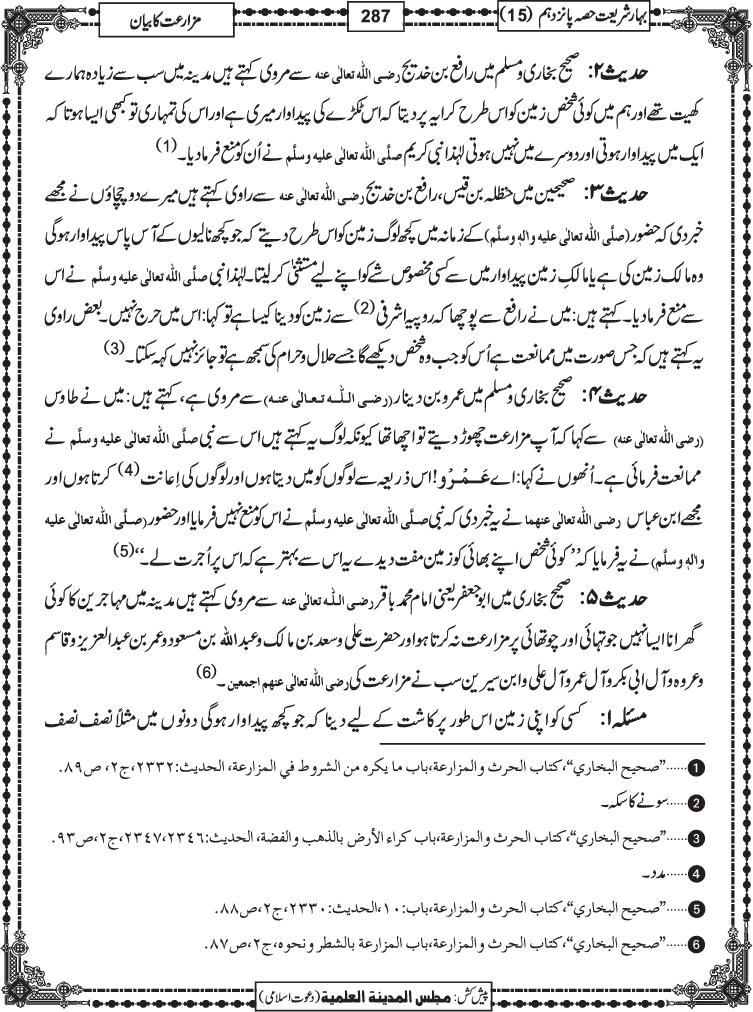 بہارِشریعت حصہ پانزدہم (15)
287
مزارعت کا بیان
حدیث ۲: صحیح بخاری و مسلم میں رافع بن خدیج رضی اللہ تعالٰی عنہ سے مروی کہتے ہیں مدینہ میں سب سے زیادہ ہمارے
کھیت تھے اور ہم میں کوئی شخص زمین کو اس طرح کرایہ پر دیتا کہ اس ٹکڑے کی پیداوار میری ہے اور اس کی تمہاری تو کبھی ایسا ہوتا کہ
ایک میں پیداوار ہوتی اور دوسرے میں نہیں ہوتی لہٰذا نبی کریم صلَّی اللہ تعالٰی علیہ وسلَّم نے اُن کو منع فرمادیا۔(1)
حدیث ۳: صحیحین میں حنظلہ بن قیس، رافع بن خدیج رضی اللہ تعالٰی عنہ سے راوی کہتے ہیں میرے دو چچاؤں نے مجھے
خبر دی کہ حضور (صلَّی اللہ تعالٰی علیہ واٰلہٖ وسلَّم) کے زمانہ میں کچھ لوگ زمین کو اس طرح دیتے کہ جو کچھ نالیوں کے آس پاس پیداوار ہوگی
وہ مالک زمین کی ہے یا مالکِ زمین پیداوار میں سے کسی مخصوص شے کو اپنے لیے مستثنیٰ کرلیتا۔ لہٰذا نبی صلَّی اللہ تعالٰی علیہ وسلَّم نے اس
سے منع فرمادیا۔ کہتے ہیں: میں نے رافع سے پوچھا کہ روپیہ اشرفی(2) سے زمین کو دینا کیسا ہے تو کہا: اس میں حرج نہیں۔ بعض راوی
یہ کہتے ہیں کہ جس صورت میں ممانعت ہے اُس کو جب وہ شخص دیکھے گا جسے حلال و حرام کی سمجھ ہے تو جائز نہیں کہہ سکتا۔(3)
حدیث ۴: صحیح بخاری و مسلم میں عمرو بن دینار (رضی اللہ تعالٰی عنہ) سے مروی ہے، کہتے ہیں: میں نے طاوس
(رضی اللہ تعالٰی عنہ) سے کہا کہ آپ مزارعت چھوڑ دیتے تو اچھا تھا کیونکہ لوگ یہ کہتے ہیں اس سے نبی صلَّی اللہ تعالٰی علیہ وسلَّم نے
ممانعت فرمائی ہے۔ اُنھوں نے کہا: اے عَمْرْو! اس ذریعہ سے لوگوں کو میں دیتا ہوں اور لوگوں کی اِعانت(4) کرتا ہوں اور
مجھے ابن عباس رضی اللہ تعالٰی عنہما نے یہ خبر دی کہ نبی صلَّی اللہ تعالٰی علیہ وسلَّم نے اس کو منع نہیں فرمایا اور حضور (صلَّی اللہ تعالٰی علیہ
واٰلہٖ وسلَّم) نے یہ فرمایا کہ ’’کوئی شخص اپنے بھائی کو زمین مفت دیدے یہ اس سے بہتر ہے کہ اس پر اُجرت لے۔‘‘(5)
حدیث ۵: صحیح بخاری میں ابو جعفر یعنی امام محمد باقر رضی اللہ تعالٰی عنہ سے مروی کہتے ہیں مدینہ میں مہاجرین کا کوئی
گھرانا ایسا نہیں جو تہائی اور چوتھائی پر مزارعت نہ کرتا ہو اور حضرت علی و سعد بن مالک و عبداللہ بن مسعود و عمر بن عبدالعزیز و قاسم
و عروہ و آل ابی بکر و آل عمر و آل علی و ابن سیرین سب نے مزارعت کی رضی اللہ تعالٰی عنہم اجمعین۔(6)
مسئلہ ۱: کسی کو اپنی زمین اس طور پر کاشت کے لیے دینا کہ جو کچھ پیداوار ہوگی دونوں میں مثلاً نصف نصف
1 ......”صحيح البخاري“، كتاب الحرث والمزارعة، باب ما يكره من الشروط في المزارعة، الحديث: ۲۳۳۲، ج۲، ص۸۹.
2 ......سونے کا سکہ۔
3 ......”صحيح البخاري“، كتاب الحرث والمزارعة، باب كراء الأرض بالذهب والفضة، الحديث: ۲۳۴۷،۲۳۴۶، ج۲، ص۹۳.
4 ......مدد۔
5 ......”صحيح البخاري“، كتاب الحرث والمزارعة، باب: ۱۰، الحديث: ۲۳۳۰، ج۲، ص۸۸.
6 ......”صحيح البخاري“، كتاب الحرث والمزارعة، باب المزارعة بالشطر ونحوه، ج۲، ص۸۷.
پیش کش: مجلس المدینۃ العلمیۃ (دعوت اسلامی)